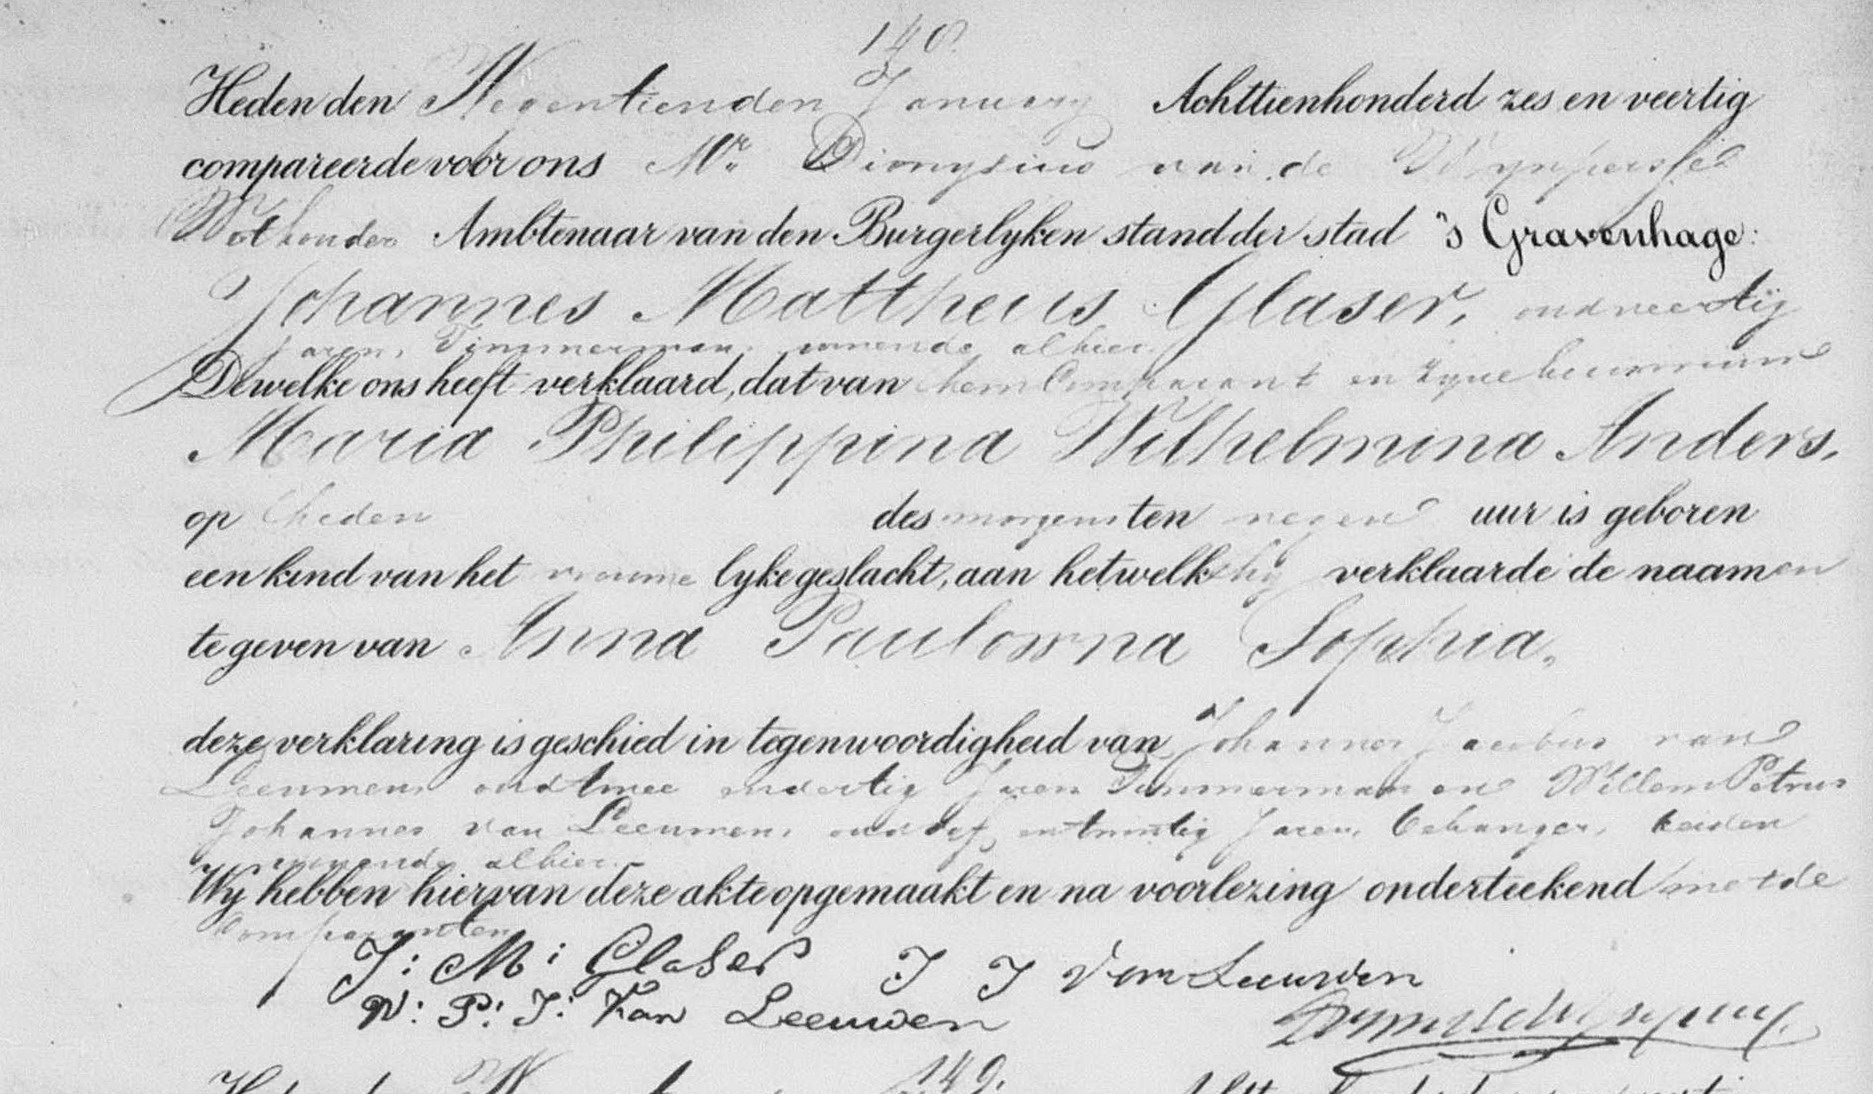 148.
Heden den Negentienden January Achttienhonderd zes en veertig
compareerde voor ons Mr. Dionysius van de Wynpersse
Wethouder Ambtenaar van den Burgerlyken stand der stad 's Gravenhage:
Johannes Mattheus Glaser, oud veertig
Jaren, Timmerman, wonende alhier.
Dewelke ons heeft verklaard, dat van hem Comparant en zyne huisvrouw
Maria Philippina Wilhelmina Anders.
op heden des morgens ten negen uur is geboren
een kind van het vrouwe lyke geslacht, aan hetwelk hy verklaarde de naamen
te geven van Anna Paulowna Sophia.
deze verklaring is geschied in tegenwoordigheid van Johannes Jacobus van
Leeuwen, oud twee en dertig Jaren Timmerman en Willem Petrus
Johannes van Leeuwen, oud en twintig Jaren, behanger, beiden
wonende alhier.
Wy hebben hiervan deze akte opgemaakt en na voorlezing onderteekend met de
Comparanten
J: M: Glaser J J Van Leeuwen
W: P: J: Van Leeuwen
149.